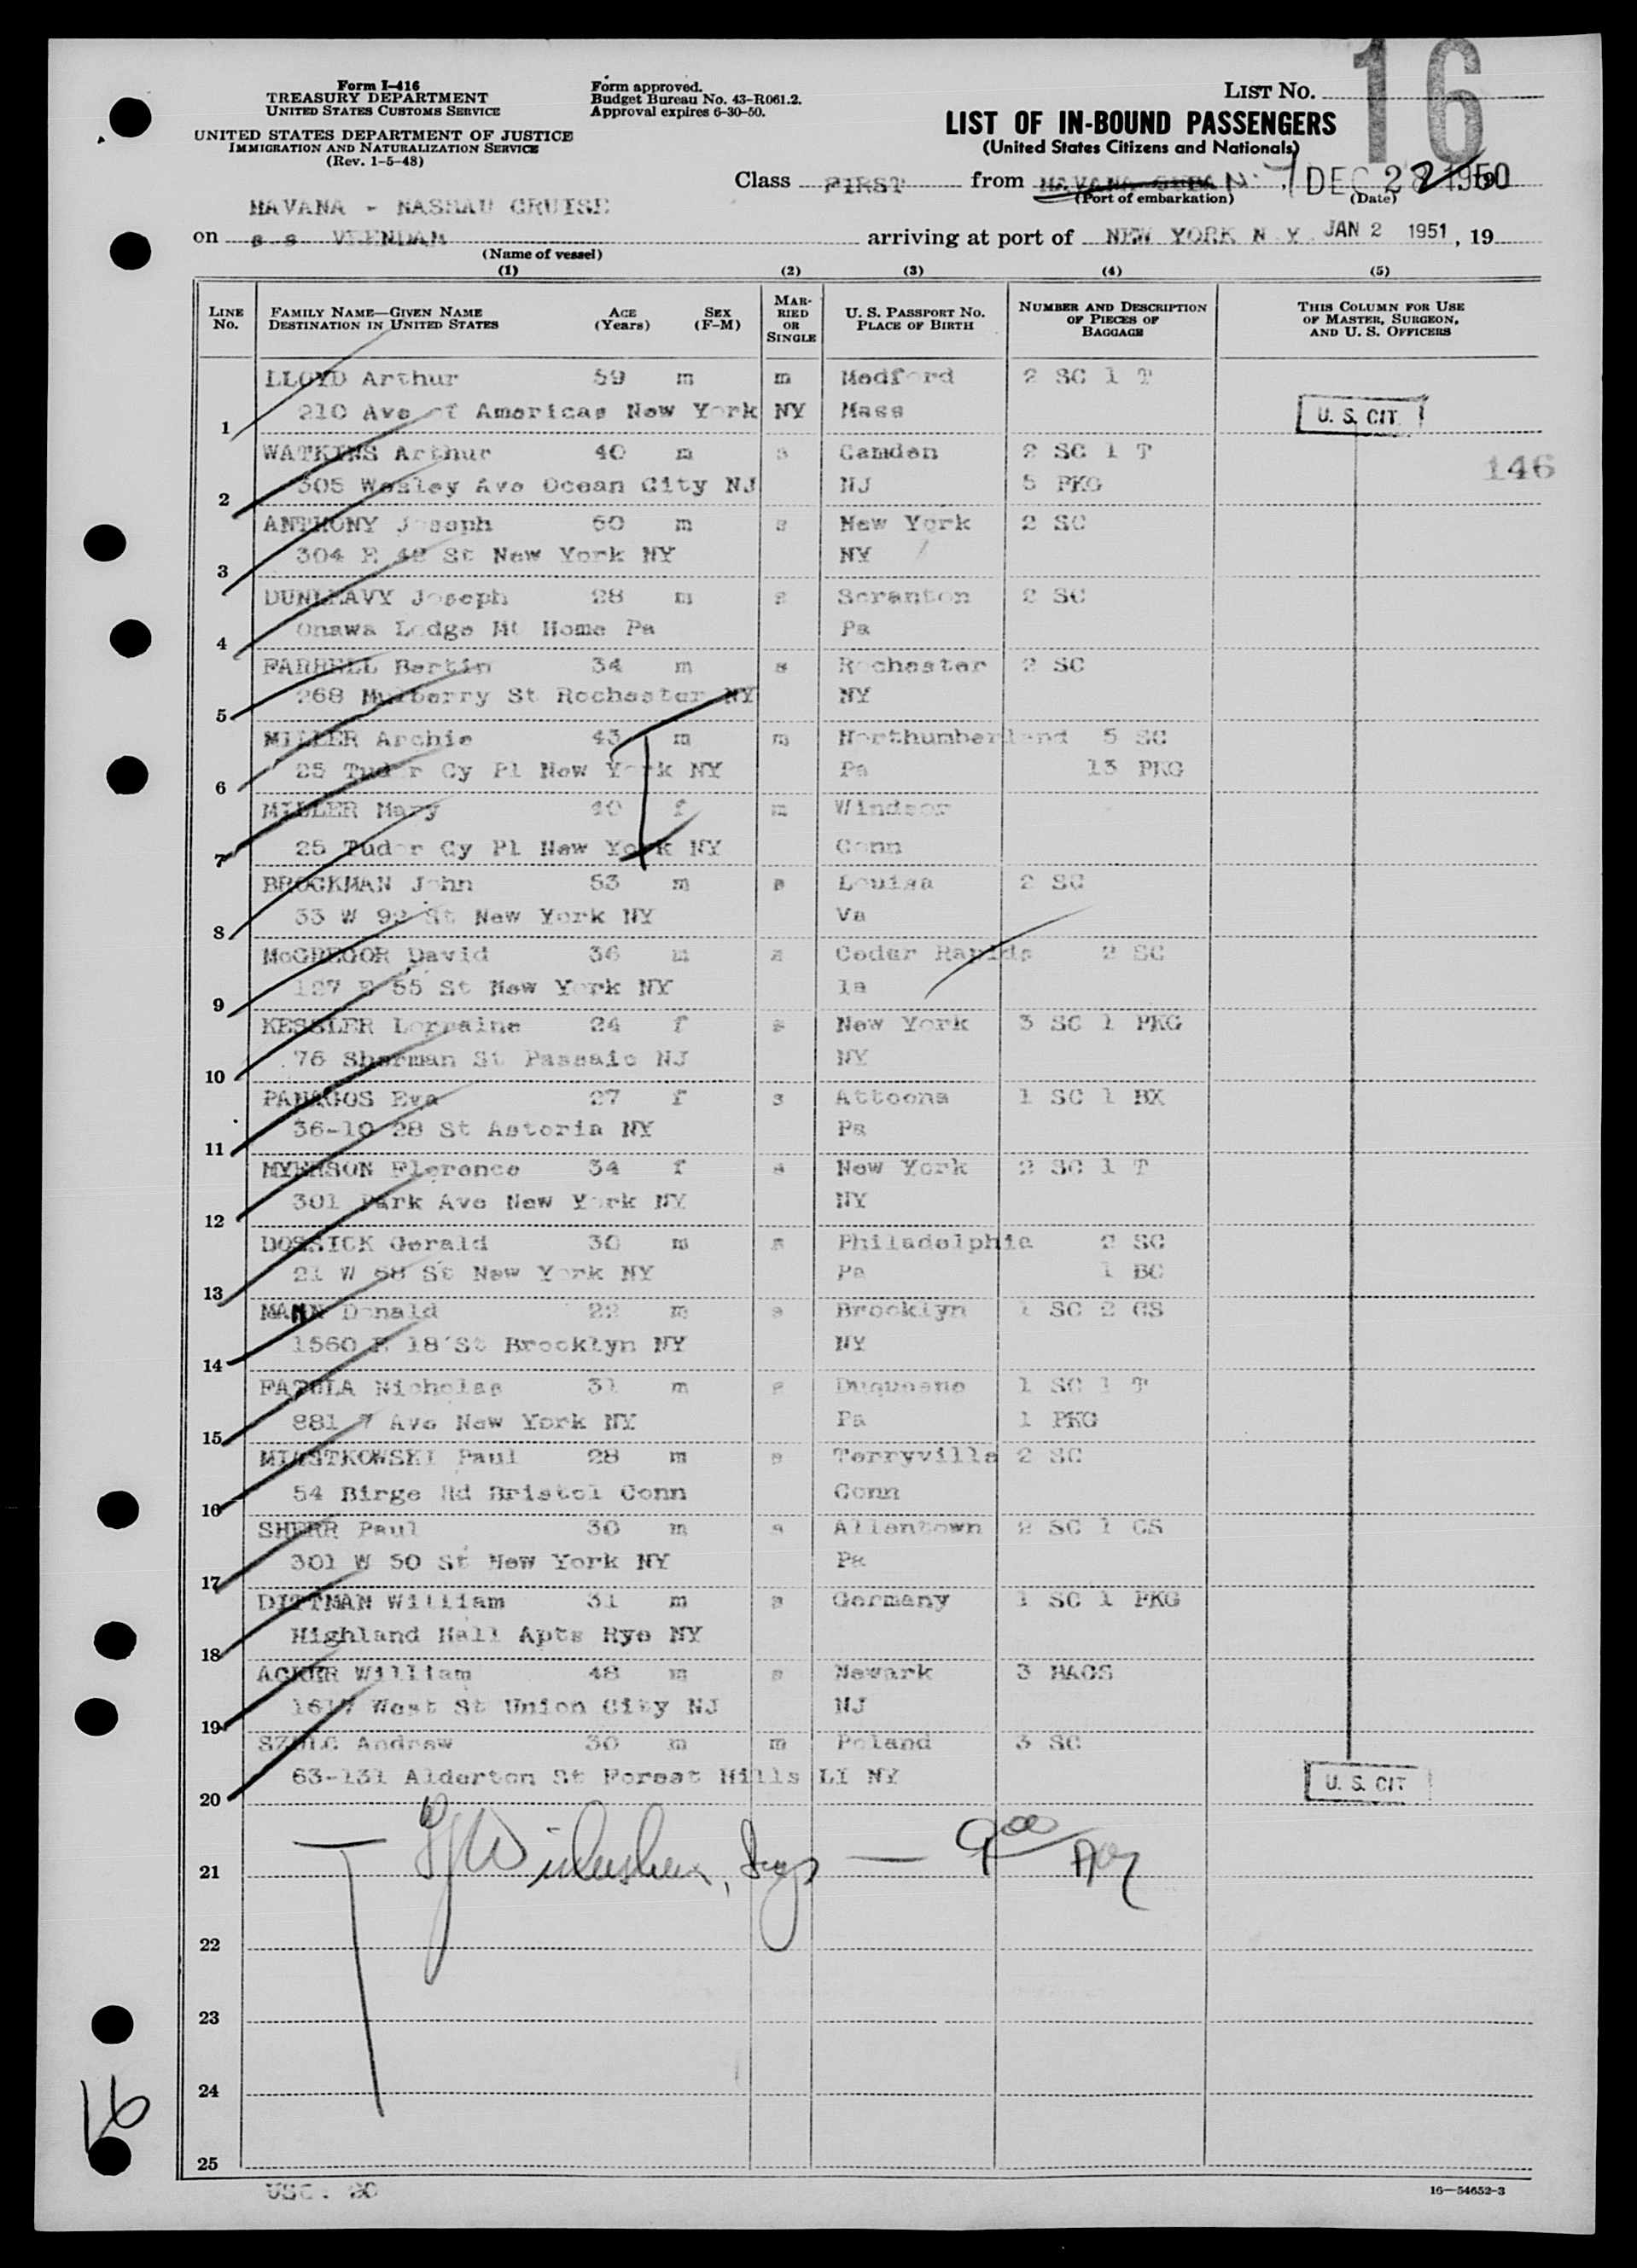 Form I-416
TREASURY DEPARTMENT
UNITED STATES CUSTOMS SERVICE
UNITED STATES DEPARTMENT OF JUSTICE
IMMIGRATION AND NATURALIZATION SERVICE
(Rev. 1-5-48)
Form approved.
Budget Bureau No. 43-R061.2.
Approval expires 6-30-50.
LIST NO. 16
LIST OF IN-BOUND PASSENGERS
(United States Citizens and Nationals)
Class FIRST from HAVANA CUBA N.Y DEC 22 1950
(Port of embarkation) (Date)
HAVANA - NASSAU CRUISE
on s s VEENDAM arriving at port of NEW YORK N Y JAN 2 1951, 19
(Name of vessel)
(1) (2) (3) (4) (5)
LINE No. FAMILY NAME—GIVEN NAME DESTINATION IN UNITED STATES AGE (Years) SEX (F-M) MARRIED OR SINGLE U. S. PASSPORT NO. PLACE OF BIRTH NUMBER AND DESCRIPTION OF PIECES OF BAGGAGE THIS COLUMN FOR USE OF MASTER, SURGEON, AND U. S. OFFICERS
LLOYD Arthur 59 m m Medford 2 SC 1 T
1 210 Ave of Americas New York NY Mass U. S. CIT
WATKINS Arthur 40 m s Camden 2 SC 1 T 146
2 305 Wesley Ave Ocean City NJ NJ 5 PKG
ANTHONY Joseph 60 m s New York 2 SC
3 304 E 42 St New York NY NY
DUNLEAVY Joseph 28 m s Scranton 2 SC
4 Onawa Lodge Mt Home Pa Pa
FARRELL Bertin 34 m s Rochester 2 SC
5 268 Mulberry St Rochester NY NY
MILLER Archie 43 m m Northumberland 5 SC
6 25 Tudor Cy Pl New York NY Pa 13 PKG
MILLER Mary 40 f m Windsor
7 25 Tudor Cy Pl New York NY Conn
BROCKMAN John 53 m s Louisa 2 SC
8 33 W 92 St New York NY Va
McGREGOR David 36 m s Cedar Rapids 2 SC
9 127 E 55 St New York NY Ia
KESSLER Lorraine 24 f s New York 3 SC 1 PKG
10 76 Sherman St Passaic NJ NY
PANAGOS Eva 27 f s Attoona 1 SC 1 BX
11 36-10 28 St Astoria NY Pa
MYERSON Florence 34 f s New York 2 SC 1 T
12 301 Park Ave New York NY NY
DOSSICK Gerald 30 m s Philadelphia 2 SC
13 21 W 58 St New York NY Pa 1 BC
MANN Donald 22 m s Brooklyn 1 SC 2 CS
14 1560 E 18 St Brooklyn NY NY
FAZOLA Nicholas 31 m s Duquesne 1 SC 1 T
15 881 7 Ave New York NY Pa 1 PKG
MIASTKOWSKI Paul 28 m s Terryville 2 SC
16 54 Birge Rd Bristol Conn Conn
SHERR Paul 30 m s Allentown 2 SC 1 CS
17 301 W 50 St New York NY Pa
DITTMAN William 31 m s Germany 1 SC 1 PKG
18 Highland Hall Apts Rye NY
ACKER William 48 m s Newark 3 BAGS
19 1617 West St Union City NJ NJ
SZULC Andrew 30 m m Poland 3 SC
20 63-131 Alderton St Forest Hills LI NY U. S. CIT
21 9 00
22
23
24
25
16
USC. 20
16—54652-3